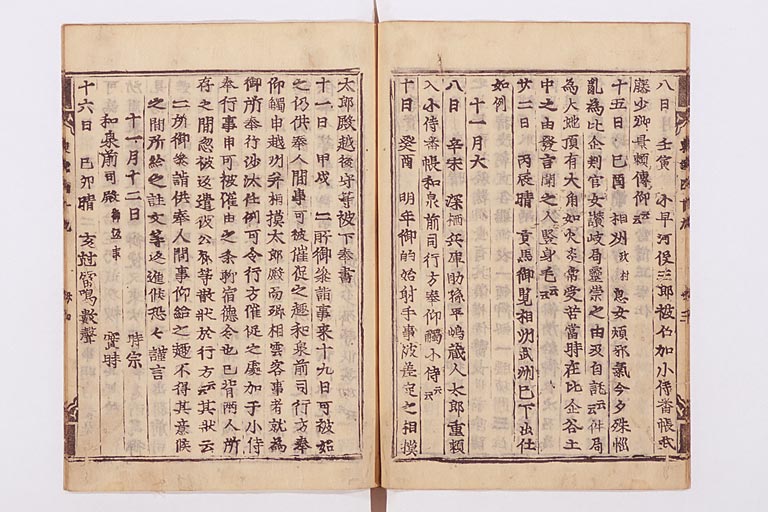 八日　壬寅　小早河俊三郎被仰加小侍番帳武
藤少卿景頼傳仰云云
十五日　己酉　相州政村息女煩邪氣今夕殊惱
亂為比企判官女讃岐局靈祟之由及自託云云件局
為大蛇頂有大角如火炎常受苦當時在比企谷土
中之由發言聞之人竪身毛云云
廿二日　丙辰　晴　貢馬御覽相州武州已下出仕
如例
十一月大
八日　辛未　深栖兵庫助孫平嶋蔵人太郎重頼
入小侍番帳和泉前司行方奉仰觸小侍云云
十日　癸酉　明年御的始射手事被差定之相摸
太郎殿越後守等被下奉書
十一日　甲戌　二所御參詣事来十九日可被始
之仍供奉人間事可被催促之趣和泉前司行方奉
仰觸申越州并相摸太郎殿而殊相雲客事者就為
御所奉行沙汰任例可令行方催促之處加于小侍
奉行事申可被催由之条聊宿德令也已背両人所
存之間忽被送遣彼公卿等散状於行方云云其状云
二所御參詣供奉人間事仰給之趣不得其意候
之間所給之註文等返進候恐々謹言
十一月十二日　時宗
實時
和泉前司殿
十六日　己卯　晴　亥尅雷鳴數聲